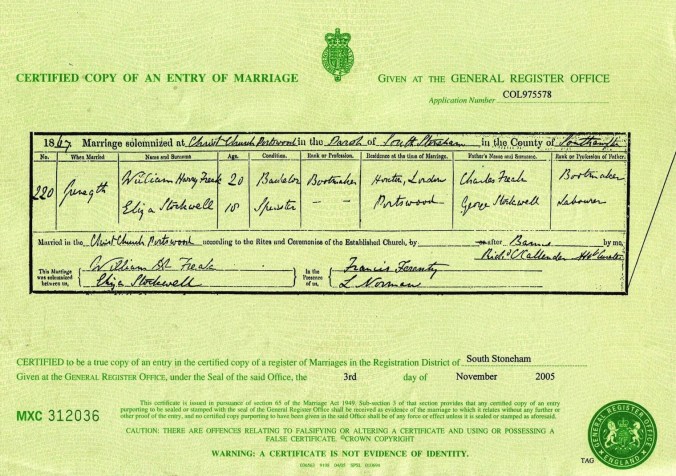 CERTIFIED COPY OF AN ENTRY OF MARRIAGE
GIVEN AT THE GENERAL REGISTER OFFICE
Application Number COL975578
1867. Marriage solemnized at Christ Church Portswood in the Parish of South Stoneham in the County of
No. When Married Name and Surname Age. Condition. Rank or Profession. Residence at the time of Marriage. Father's Name and Surname. Rank or Profession of Father.
220 William Henry Freak 20 Bachelor Bootmaker London Charles Freak Bootmaker
Eliza Stockwell 18 Spinster — — Portswood George Stockwell Labourer
Married in the Christ Church Portswood according to the Rites and Ceremonies of the Established Church, by — after Banns by me,
Callender
This Marriage was solemnized between us, William H Freak In the Presence of us, Francis
Eliza Stockwell L Norman
CERTIFIED to be a true copy of an entry in the certified copy of a register of Marriages in the Registration District of South Stoneham
Given at the GENERAL REGISTER OFFICE, under the Seal of the said Office, the 3rd day of November 2005
This certificate is issued in pursuance of section 65 of the Marriage Act 1949. Sub-section 3 of that section provides that any certified copy of an entry
purporting to be sealed or stamped with the seal of the General Register Office shall be received as evidence of the marriage to which it relates without any further or
other proof of the entry, and no certified copy purporting to have been given in the said Office shall be of any force or effect unless it is sealed or stamped as aforesaid.
MXC 312036
CAUTION: THERE ARE OFFENCES RELATING TO FALSIFYING OR ALTERING A CERTIFICATE AND USING OR POSSESSING A
FALSE CERTIFICATE. ©CROWN COPYRIGHT
WARNING: A CERTIFICATE IS NOT EVIDENCE OF IDENTITY.
GENERAL REGISTER OFFICE
ENGLAND
TAG